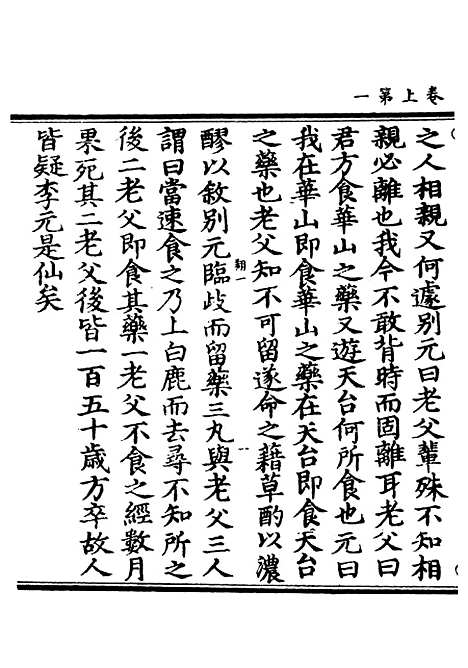 卷上第一
之人相親又何遽別元曰老父輩殊不知相
親必離也我今不敢背時而固離耳老父曰
君方食華山之藥又遊天台何所食也元曰
我在華山即食華山之藥在天台即食天台
之藥也老父知不可留遂命之藉草酌以濃
醪以敘別元臨歧而留藥三丸與老父三人
謂曰當速食之乃上白鹿而去尋不知所之
後二老父即食其藥一老父不食之經數月
果死其二老父後皆一百五十歲方卒故人
皆疑李元是仙矣